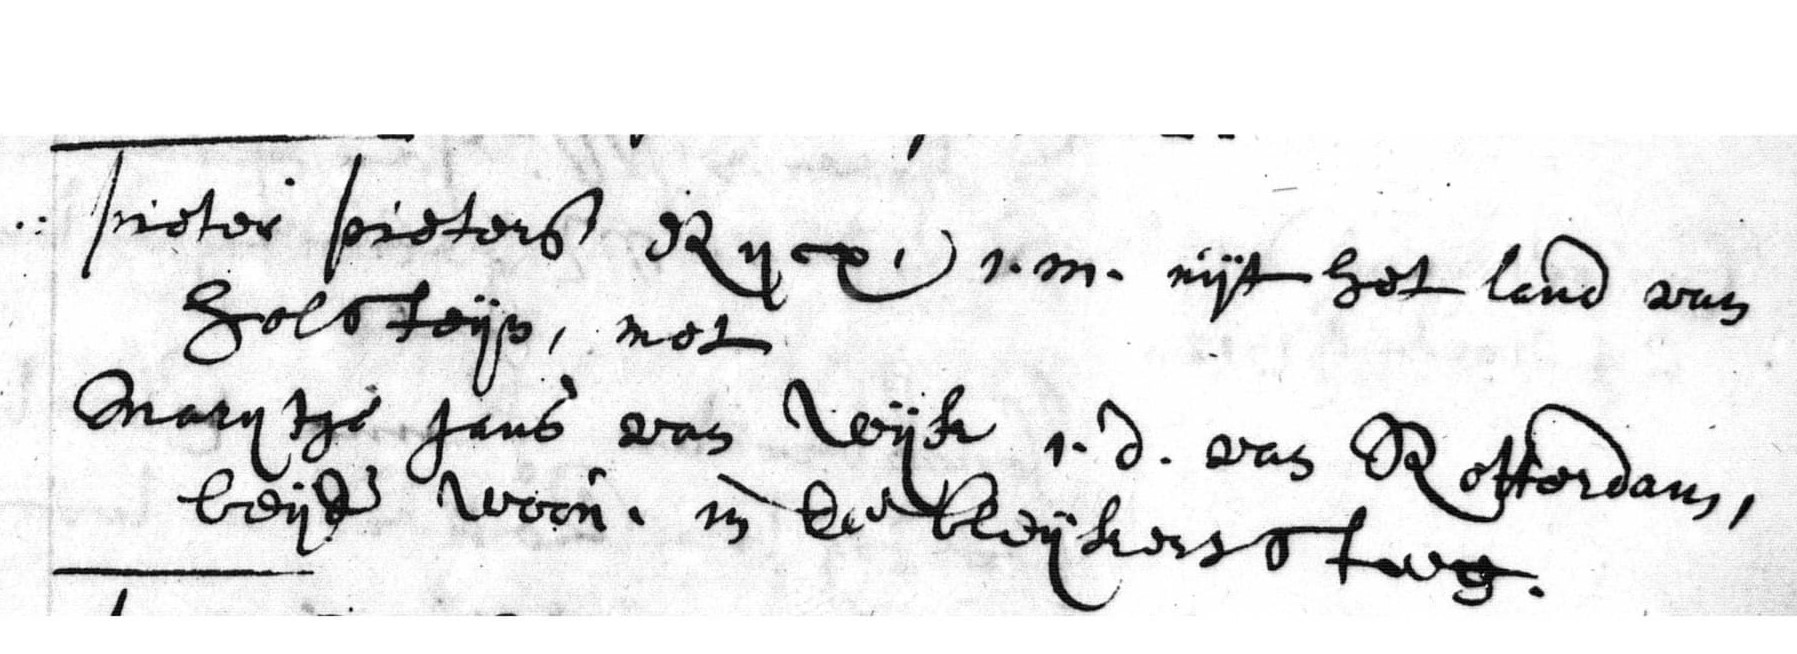 pieter pieterss Rycx, J.m. uijt het land van
Holsteijn, met
Marytge Jans van Wijk J.d. van Rotterdam,
beijde woon. in de bleijkerssteeg.